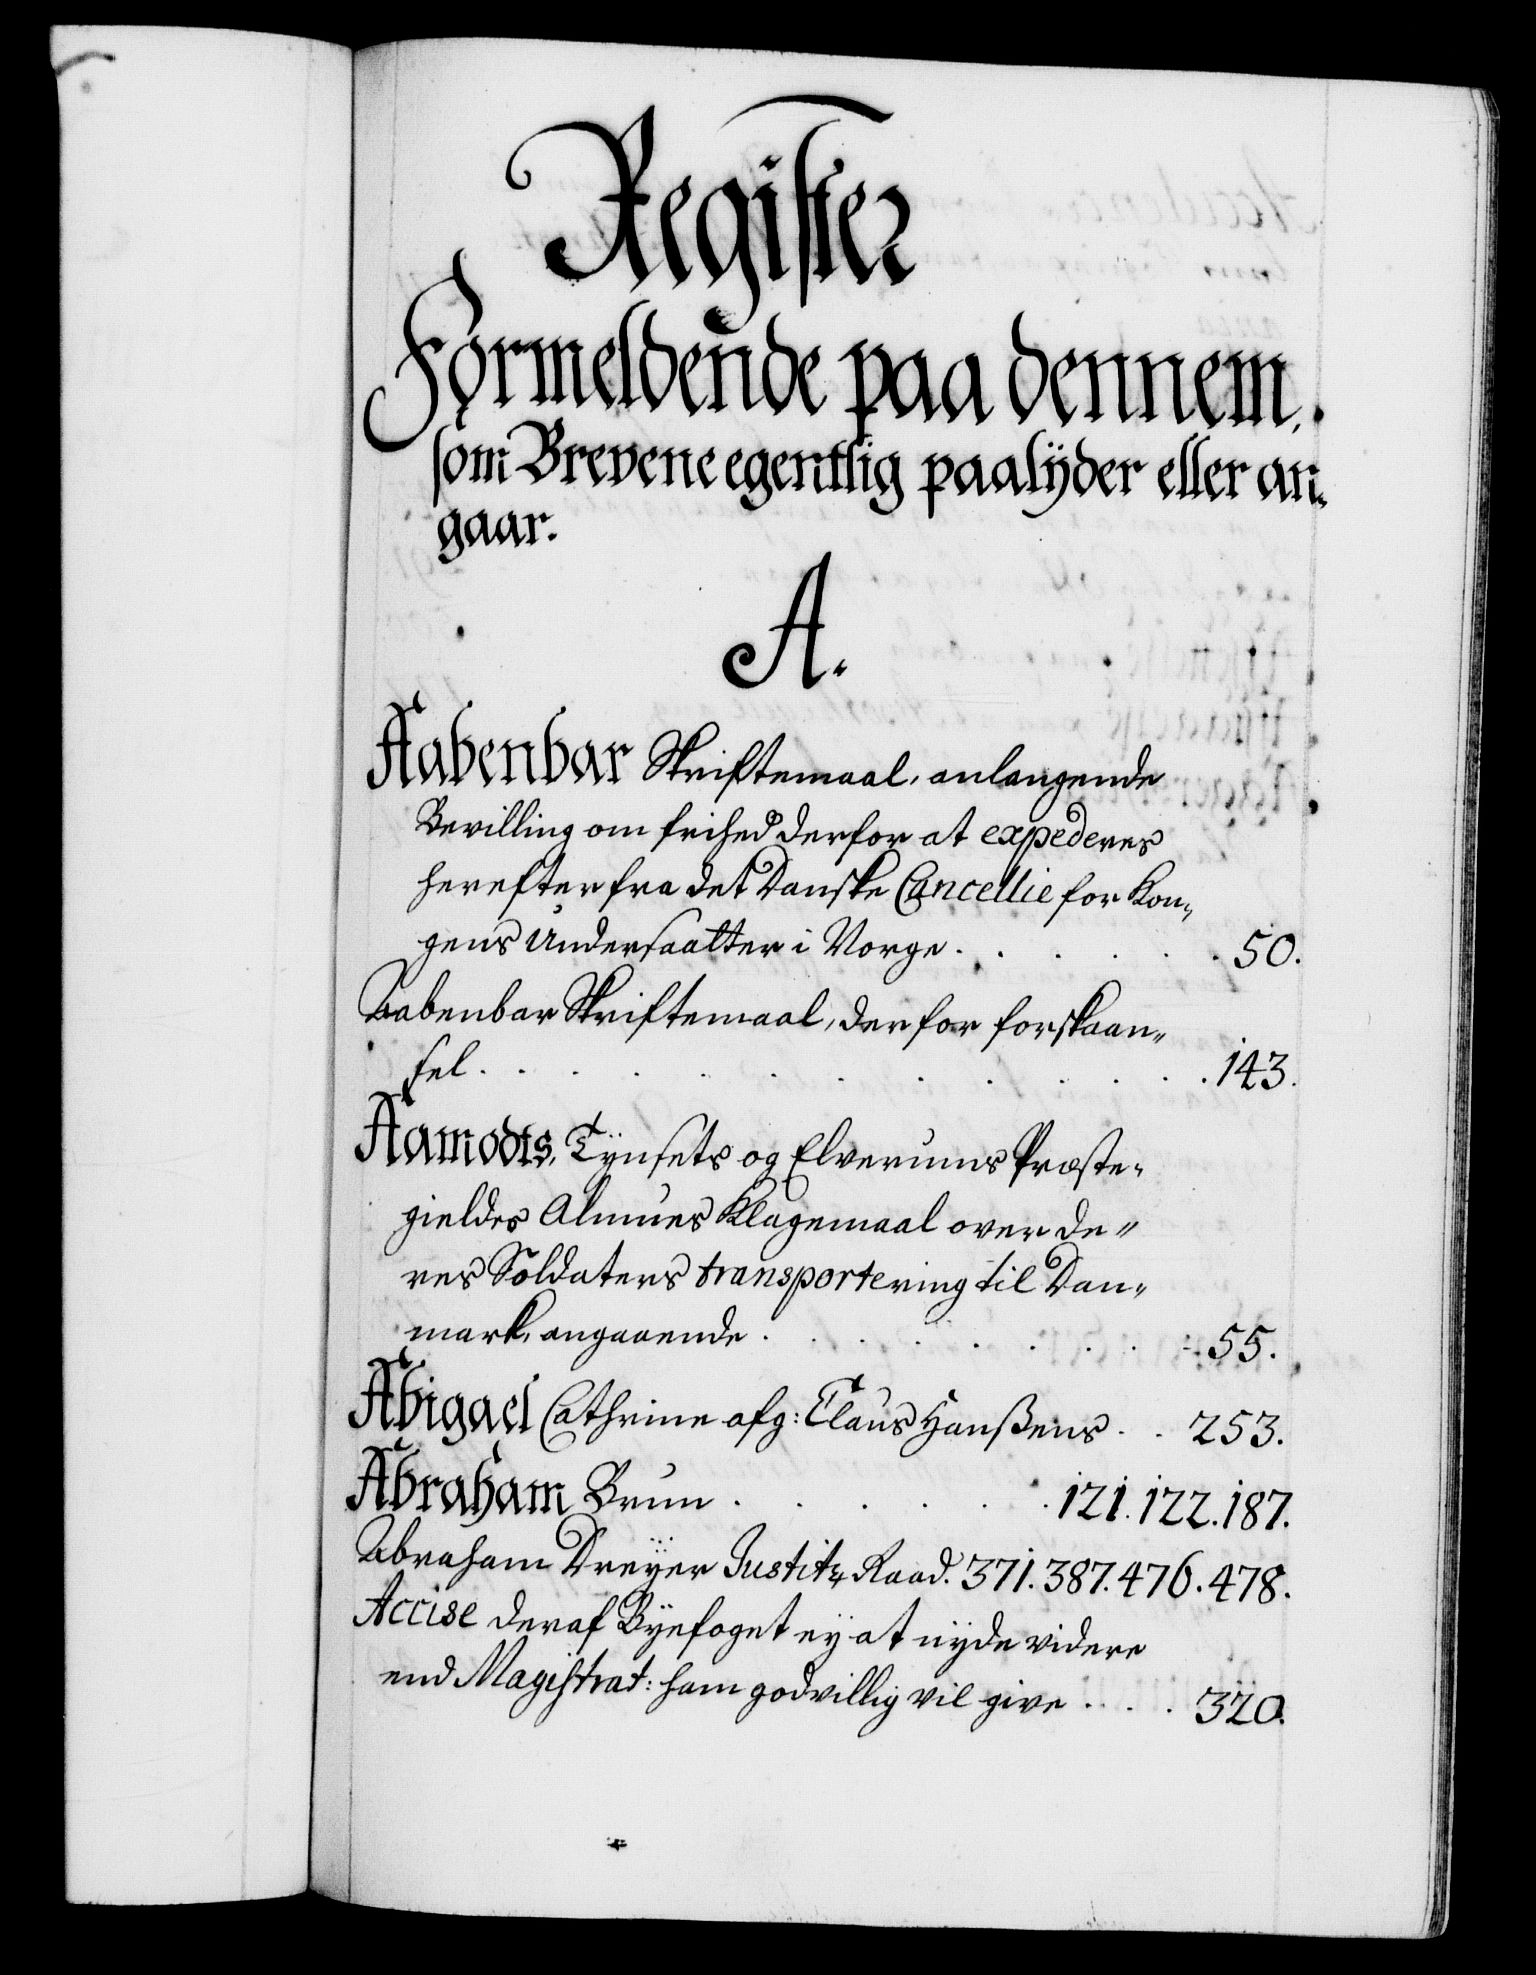 Register
Formeldende paa dennem,
som Brevene egentlig paalÿder eller an-
gaar.
A.
Aabenbar Skriftemaal, anlangende
Bevilling om frihed derfor at expederes
herefter fra det Danske Cancellie for Kon-
gens Undersaatter i Norge . . . . . . 50.
Aabenbar Skriftemaal, derfor forskaan-
sel . . . . . . . . . . . 143.
Aamodts, Tÿnsets og Elverums Præste-
gieldes Almues Klagemaal over de-
res Soldaters transportering til Dan-
mark, angaaende . . . . . . . 55.
Abigael Cathrine afg: Claus Hanßens . . 253.
Abraham Brun . . . . . . 121. 122. 187.
Abraham Dreÿer Justitz Raad. 371. 387. 476. 478.
Accise deraf Bÿefoget eÿ at nÿde videre
end Magistrat: ham godvillig vil give . . . 320.